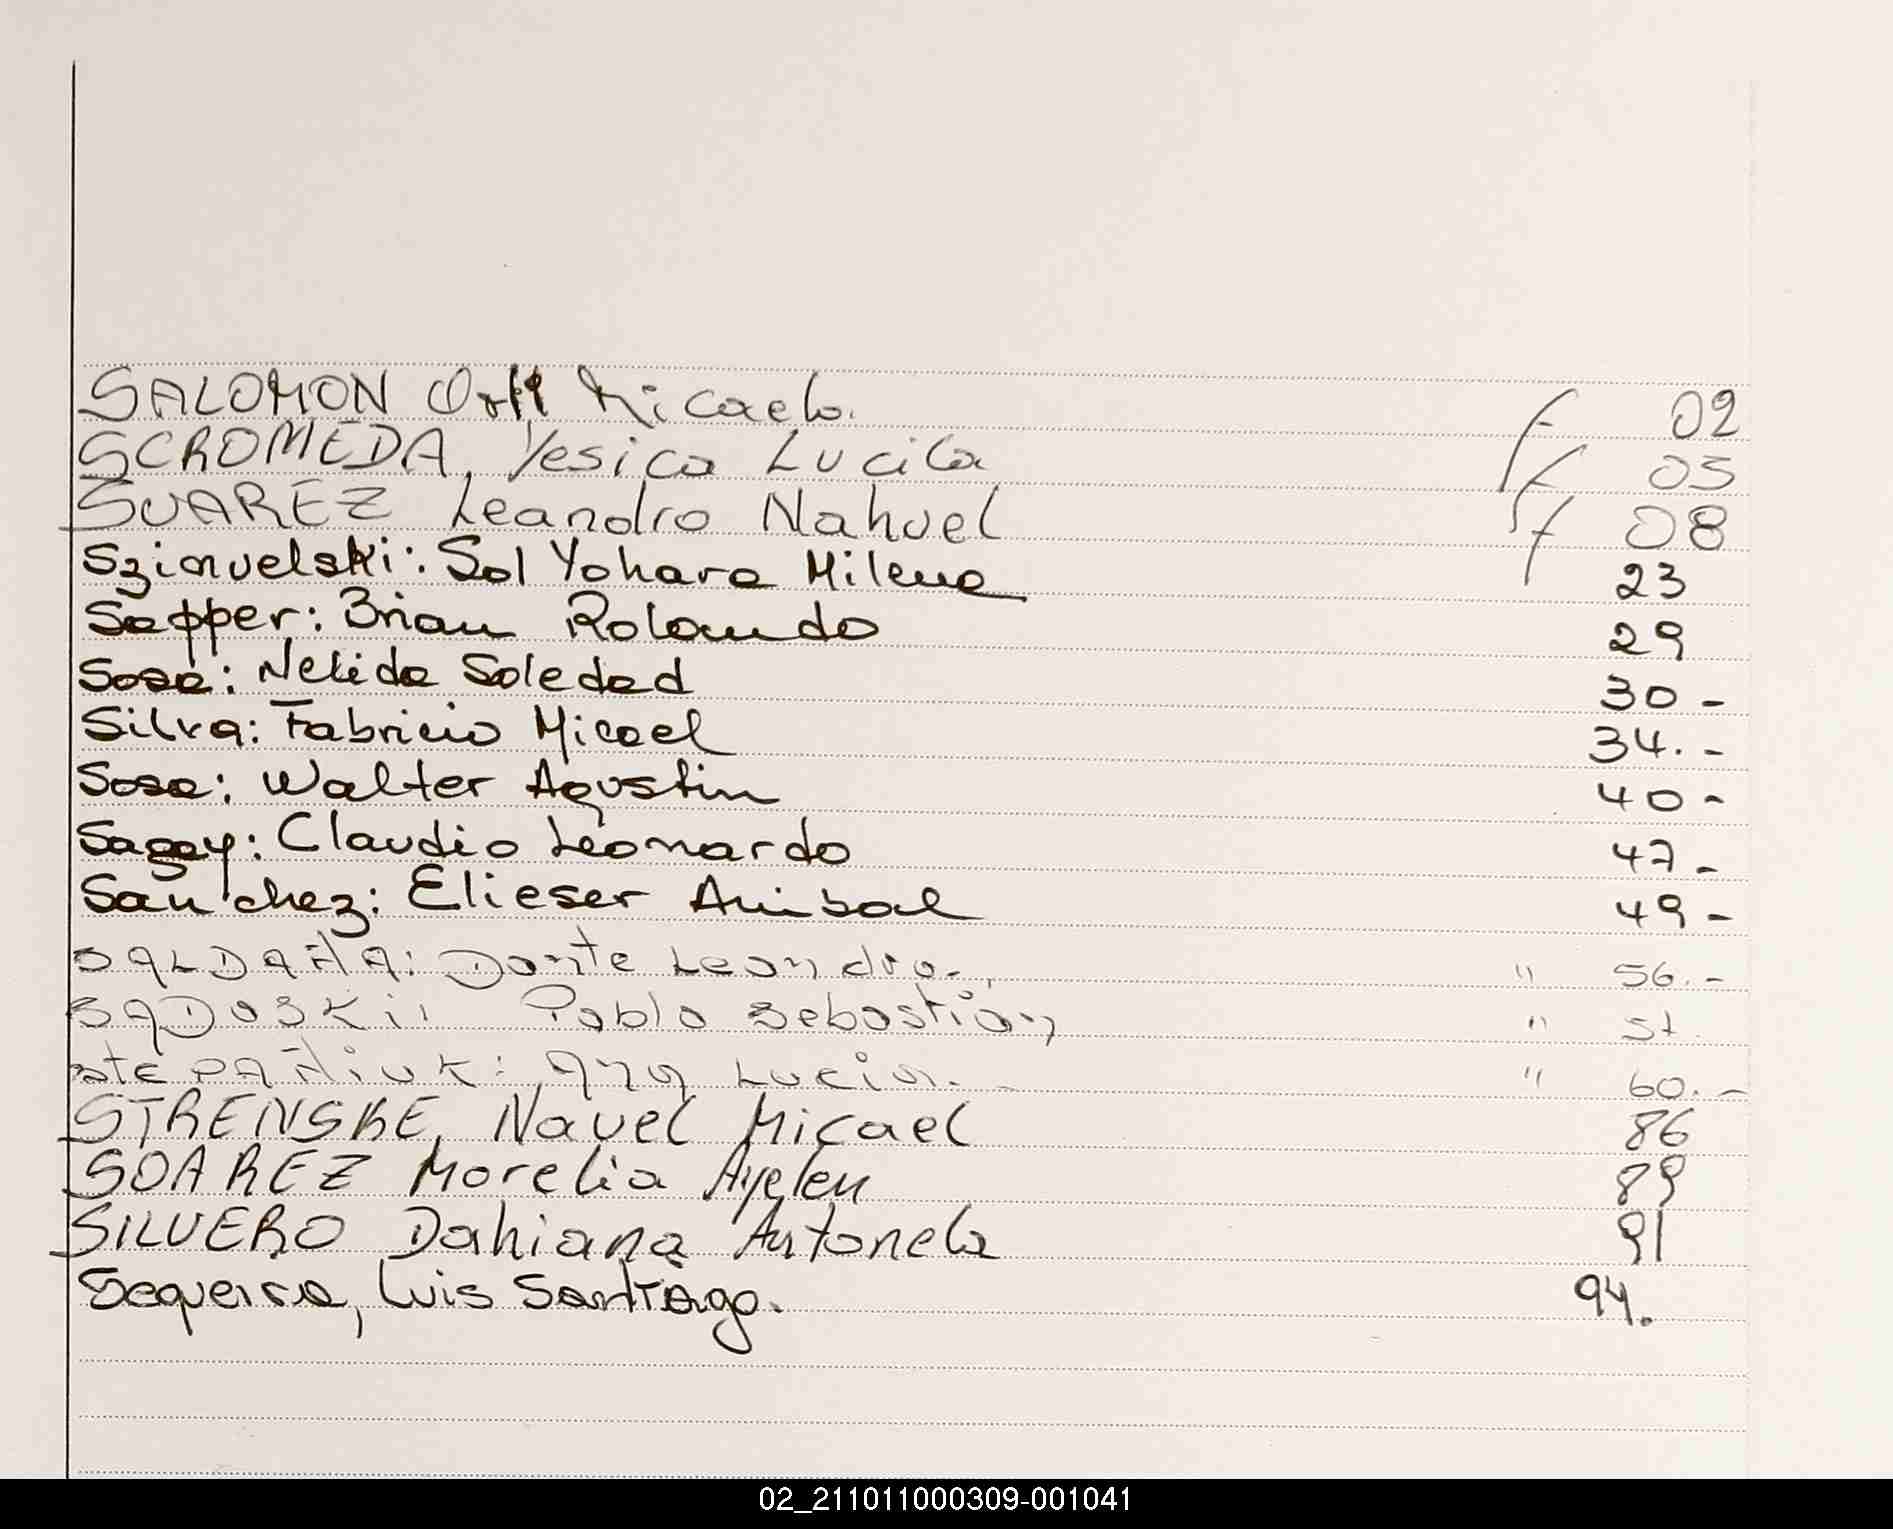 SALOMON Orti Micaela. f 02
SCROMEDA, Yesica Lucila f 05
SUAREZ Leandro Nahuel f 08
Szimvelski: Sol Yohara Milena 23
Sapper: Brian Rolando 29
Sosa: Nelida Soledad 30 -
Silva: Fabricio Micael 34. -
Sosa: Walter Agustin 40 -
Sagay: Claudio Leonardo 47 -
Sanchez: Elieser Anibal 49 -
SALDAÑA: Dante Leandro. " 56. -
SADOSKi: Pablo Sebastián " 57
StEPAÑiUK: Ana Lucia. - " 60. -
STRENSKE, Nauel Micael 86
SOAREZ Morelia Ayelen 89
SILVERO Dahiana Antonela 91
Sequeira, Luis Santiago. 94.
02_211011000309-001041